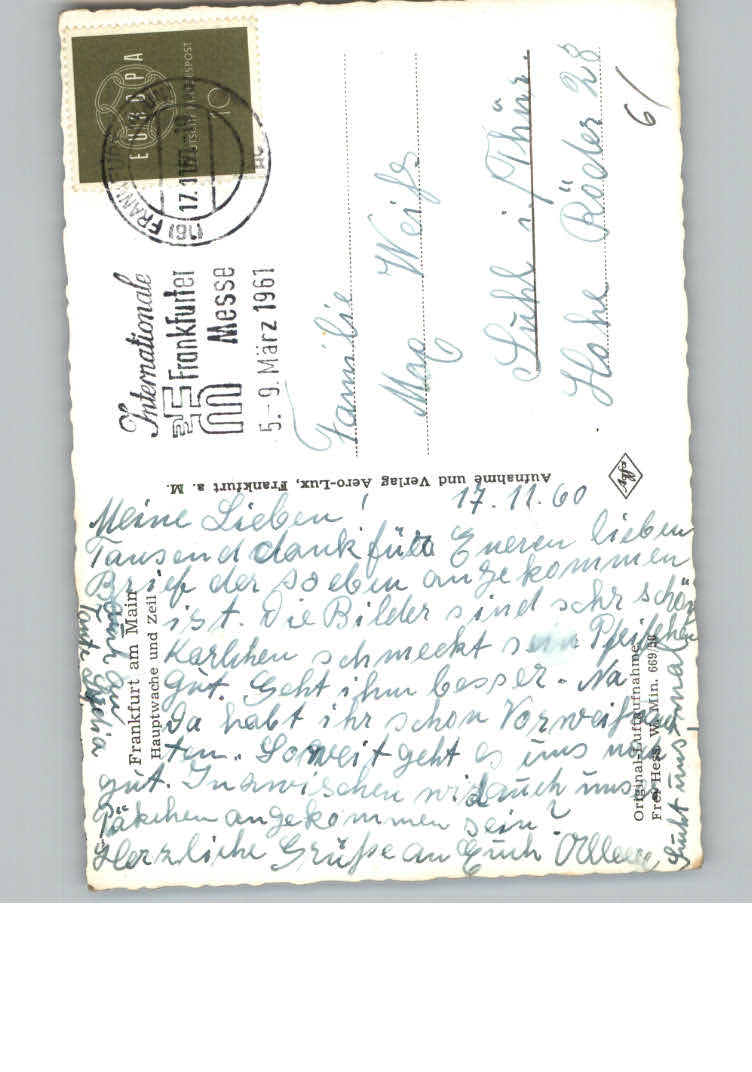 EUROPA
DEUTSCHE BUNDESPOST
10
(16) FRANKFURT
17.11.60
Internationale
Frankfurter
Messe
5.-9. März 1961
Familie
Max Weiß
Suhl i./Thür.
Hohe Röder 28
6/
Aufnahme und Verlag Aero-Lux, Frankfurt a. M.
Frankfurt am Main
Hauptwache und Zeil
Original-Luftaufnahme
Frei Hess. W. Min. 669/58
17.11.60
Meine Lieben!
Tausend dank für Eueren lieben
Brief der soeben angekommen
ist. Die Bilder sind sehr schön
Karlchen schmeckt sein Pfeifchen
gut. Geht ihm besser. Na
da habt ihr schon
Soweit geht es uns noch
gut. Inzwischen wird auch unser
Päkchen angekommen sein?
Herzliche Grüße an Euch
Tante